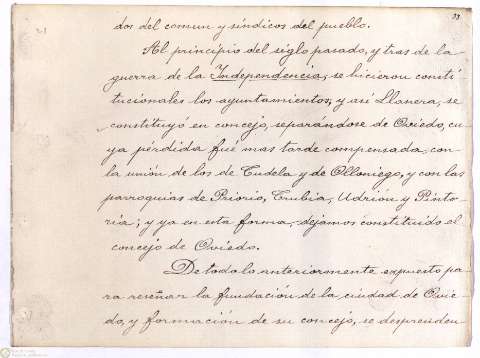 33
dos del comun y síndicos del pueblo.
Al principio del siglo pasado, y tras de la
guerra de la Independencia, se hicieron consti-
tucionales los ayuntamientos, y así Llanera, se
constituyó en concejo, separándose de Oviedo, cu-
ya pérdida fué mas tarde compensada, con
la unión de los de Tudela y de Olloniego, y con las
parroquias de Priorio, Trubia, Udrión y Pinto-
ria; y ya en esta forma, dejamos constituido el
concejo de Oviedo.
De todo lo anteriormente expuesto pa-
ra reseñar la fundación de la ciudad de Ovie-
do, y formación de su concejo, se desprenden